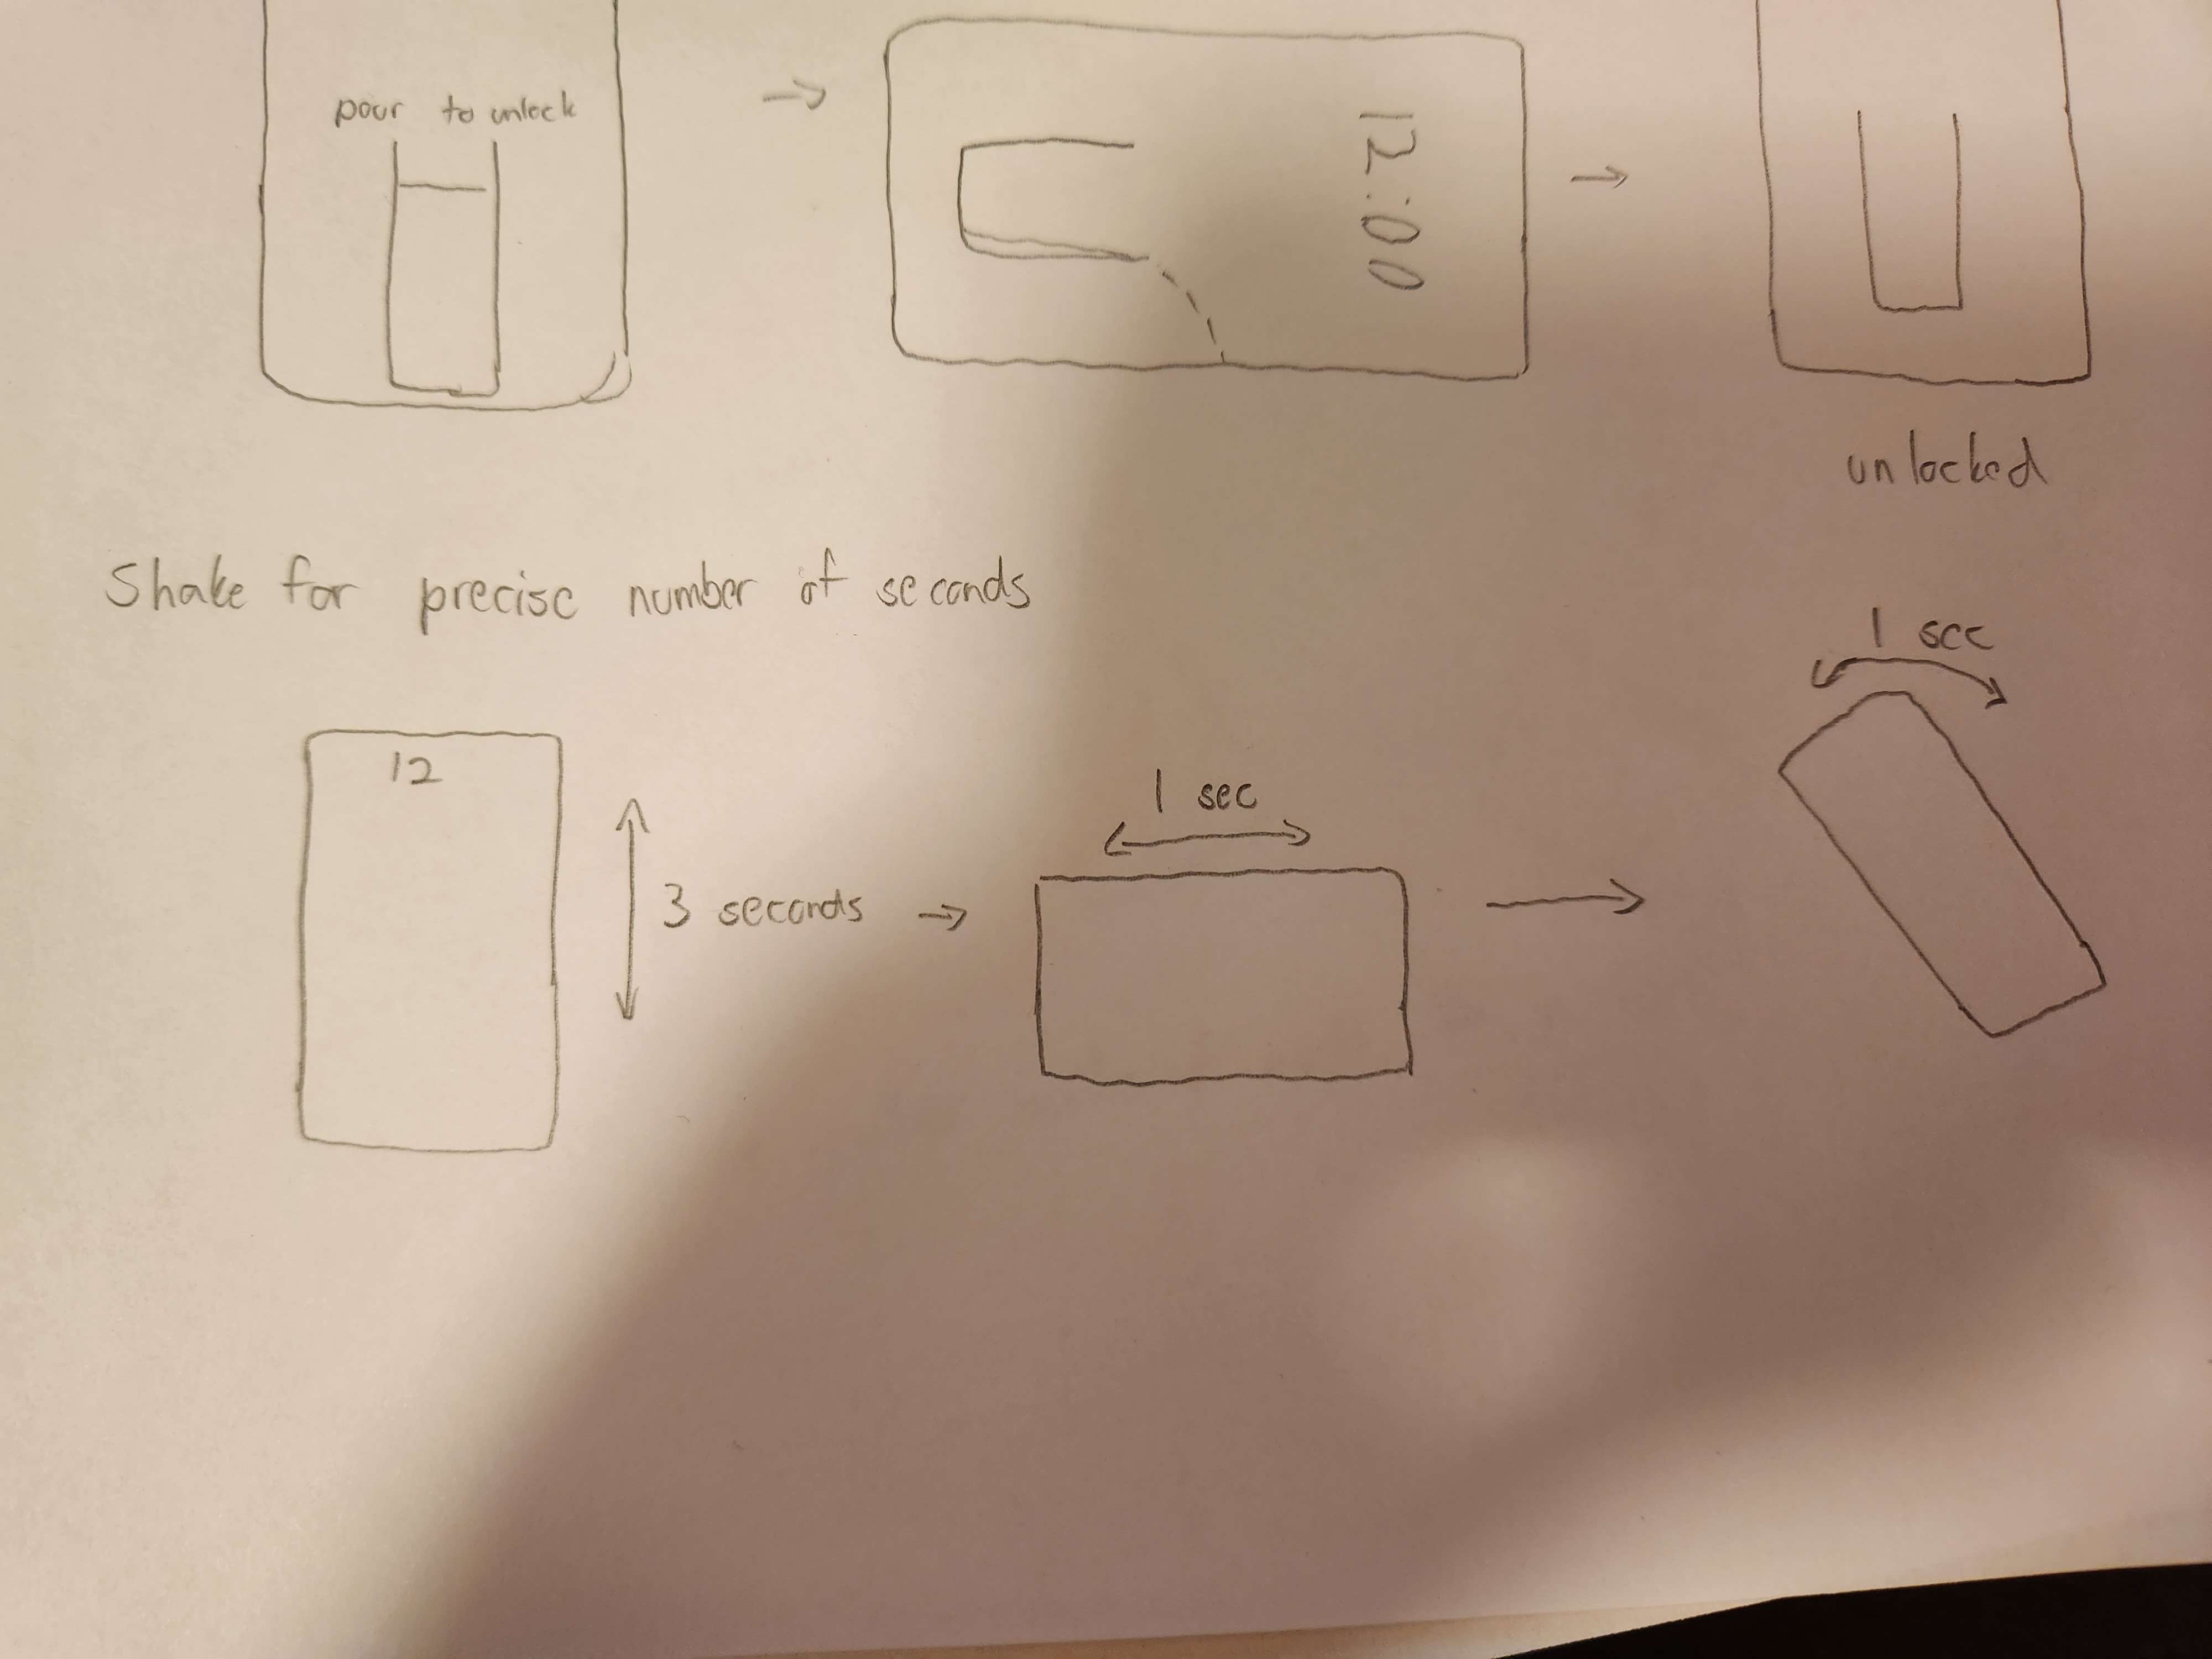 pour to unlock
12:00
unlocked
Shake for precise number of seconds
1 sec
12
1 sec
3 seconds